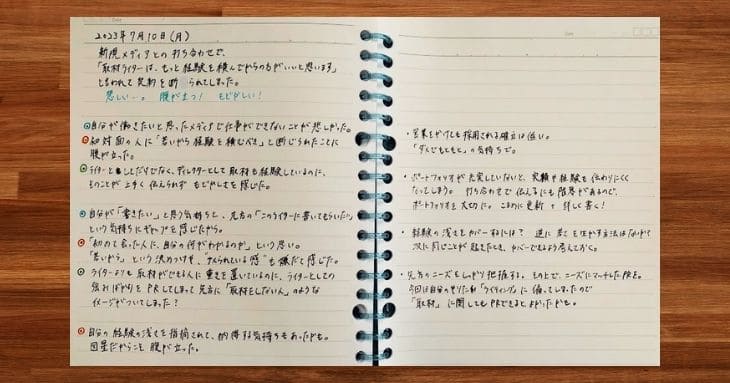 2023年7月10日(月)
新規メディアとの打ち合わせで、
「取材ライターは、もっと経験を積んでからの方がいいと思います」
と言われて契約を断られてしまった。
悲しい…。 腹が立つ! もどかしい!
自分が働きたいと思ったメディアで仕事ができないことが悲しかった。
初対面の人に「若いから経験を積むべき」と断じられたことに
腹が立った。
ライターとしてだけでなく、ディレクターとして取材も経験しているのに、
そのことが上手く伝えられずもどかしさを感じた。
自分が「書きたい」と思う気持ちと、先方の「このライターに書いてもらいたい」
という気持ちにギャップを感じたから。
「初めて会った人に、自分の何がわかるのか」という思い。
「若いから」という決めつけを、"された感"も嫌だと感じた。
ライターよりも取材ができる人に重きを置いているのに、ライターとしての
強みばかりをPRしてしまって先方に「取材をしない人」のような
イメージがついてしまった?
自分の経験の浅さを指摘されて、納得する気持ちもあったかも。
図星だからこそ腹が立った。
・営業をかけても採用される確立は低い。
「ダメでもともと」の気持ちで。
・ポートフォリオが充実していないと、実績や経験も伝わりにくく
なってしまう。 打ち合わせで伝えるにも限界があるので、
ポートフォリオを大切に。こまめに更新+詳しく書く!
・経験の浅さをカバーするには? 逆に若さを活かす方法はないか?
次に同じことが起きたとき、カバーできるよう考えておく。
・先方のニーズをしっかり把握する。その上で、ニーズにマッチしたPRを。
今回は自分のやりたい「ライティング」に偏ってしまったので
「取材」に関してもPRできるとよかったかも。